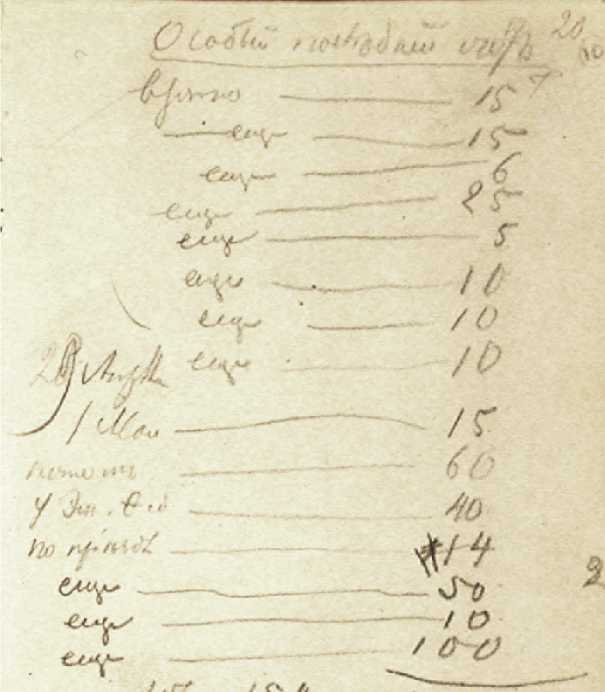 Особый последний счетъ 20
взято 15
еще 15
еще 6
еще 25
еще 5
еще 10
еще 10
еще 10
1 Мая 15
потомъ 60
У Эм. Фед 40
по приѣздѣ 14
еще 50
еще 10
еще 100